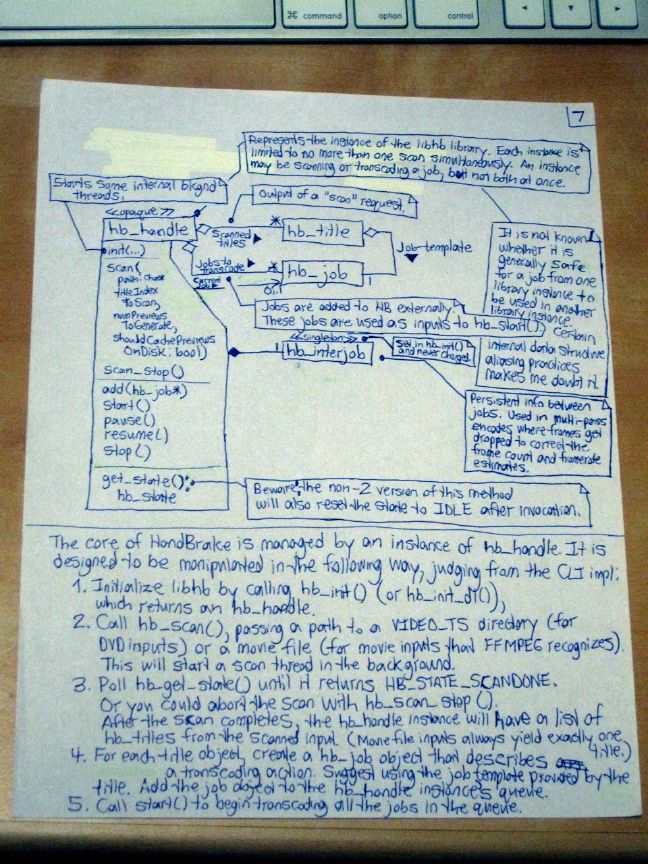 command
option
control
7
Represents the instance of the libhb library. Each instance is
limited to no more than one scan simultaneously. An instance
may be scanning or transcoding a job, but not both at once.
Starts some internal bkgnd
threads.
Output of a "scan" request.
<<opaque>>
hb_handle
Scanned
titles
*
hb_title
Job template
1
Jobs to
transcode
*
hb_job
Current
0..1
init(...)
scan(
path:
titleIndex
ToScan,
numPreviews
ToGenerate,
shouldCachePreviews
OnDisk: bool)
scan_stop()
add(hb_job*)
start()
pause()
resume()
stop()
get_state():
hb_state
It is not known
whether it is
generally safe
for a job from one
library instance to
be used in another
library instance.
Certain
internal data structure
aliasing practices
makes me doubt it.
Jobs are added to HB externally.
These jobs are used as inputs to hb_start().
<<singleton>>
1
hb_interjob
Set in hb_init()
and never changed.
Persistent info between
jobs. Used in multi-pass
encodes where frames get
dropped to correct the
frame count and framerate
estimates.
Beware: the non-2 version of this method
will also reset the state to IDLE after invocation.
The core of HandBrake is managed by an instance of hb_handle. It is
designed to be manipulated in the following way, judging from the CLI impl:
1. Initialize libhb by calling hb_init() (or hb_init_dl()),
which returns an hb_handle.
2. Call hb_scan(), passing a path to a VIDEO_TS directory (for
DVD inputs) or a movie file (for movie inputs that FFMPEG recognizes).
This will start a scan thread in the background.
3. Poll hb_get_state() until it returns HB_STATE_SCANDONE.
Or you could abort the scan with hb_scan_stop().
After the scan completes, the hb_handle instance will have a list of
hb_titles from the scanned input (Movie file inputs always yield exactly one
title.)
4. For each title object, create a hb_job object that describes
a transcoding action. Suggest using the job template provided by the
title. Add the job object to the hb_handle instance's queue.
5. Call start() to begin transcoding all the jobs in the queue.